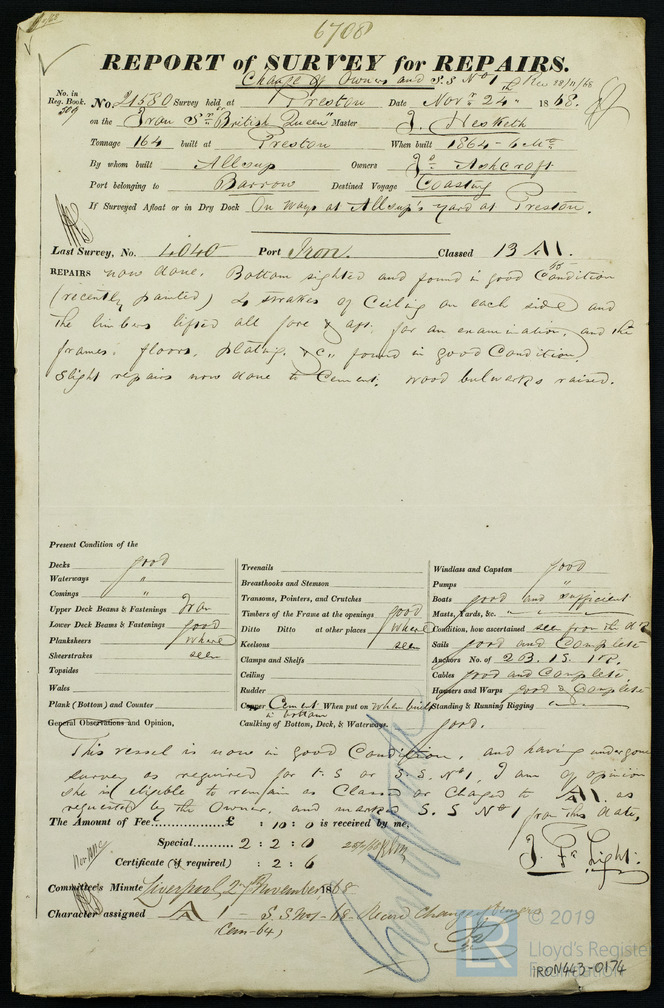 6708
REPORT of SURVEY for REPAIRS.
Change of Owners and S.S. No 1 Rec 28/11/68
No. in Reg. Book. 509 No. 21580 Survey held at Preston Date Novr 24th 1868.
on the Iron Sr "British Queen" Master J. Hesketh
Tonnage 164 built at Preston When built 1864 - 6 Mo
By whom built Allsup Owners Jo Ashcroft
Port belonging to Barrow Destined Voyage Coasting
If Surveyed Afloat or in Dry Dock On Ways at Allsup's Yard at Preston.
Last Survey, No. 4040 Port Iron. Classed 13 A1.
REPAIRS now done. Bottom sighted and found in good Condition
(recently painted) 4 strakes of Ceiling on each side and
the limbers lifted all fore & aft. for an examination, and the
frames, floors, plating, &c., found in good Condition.
Slight repairs now done to Cement. wood bulwarks raised.
Present Condition of the
Decks good
Waterways "
Comings "
Upper Deck Beams & Fastenings Iron
Lower Deck Beams & Fastenings good
Planksheers where
Sheerstrakes seen
Topsides
Wales
Plank (Bottom) and Counter
Treenails
Breasthooks and Stemson
Transoms, Pointers, and Crutches
Timbers of the Frame at the openings good
Ditto Ditto at other places where
Keelsons seen
Clamps and Shelfs
Ceiling
Rudder
Copper Cement in bottom When put on when built
Caulking of Bottom, Deck, & Waterways. good.
Windlass and Capstan good
Pumps "
Boats good and sufficient
Masts, Yards, &c. " "
Condition, how ascertained seen from the dk
Sails good and Complete
Anchors No. of 2B. 1S. 1K.
Cables good and Complete
Hausers and Warps good & Complete
Standing & Running Rigging
General Observations and Opinion,
This vessel is now in good Condition, and having undergone
survey as required for S.S. No 1, I am of opinion
she is eligible to remain as Classed or Changed to A1. as
requested by the Owner, and marked S.S No 1 from this date,
The Amount of Fee £ : 10 : 0 is received by me,
Special 2 : 2 : 0
Certificate (if required) : 2 : 6
J. Fr Light.
Committee's Minute Liverpool, 27th November, 1868
Character assigned A1 - S.S No1 - 68.
Cem-64,
© 2019
LR
Lloyd's Register
Foundation
IRON443-0174